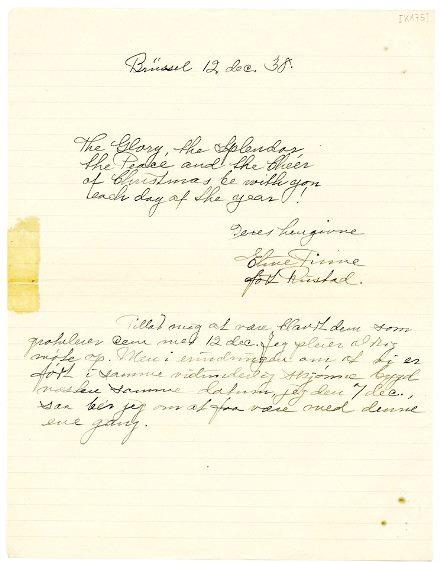 [XX75]
Brüssel 12 dec. 38.
The Glory, the Splendor
the Peace and the Cheer
of Christmas be with you
each day of the year!
Deres hengivne
Eline Finne
født Rustad.
Tillad mig at være blandt dem som
gratulerer Dem med 12 dec. Jeg pleier ikke
møte op. Men i erindringen om at vi er
født i samme vidunderlig skjønne bygd
næsten samme datum, jeg den 7 dec.,
saa ber jeg om at faa være med denne
ene gang.